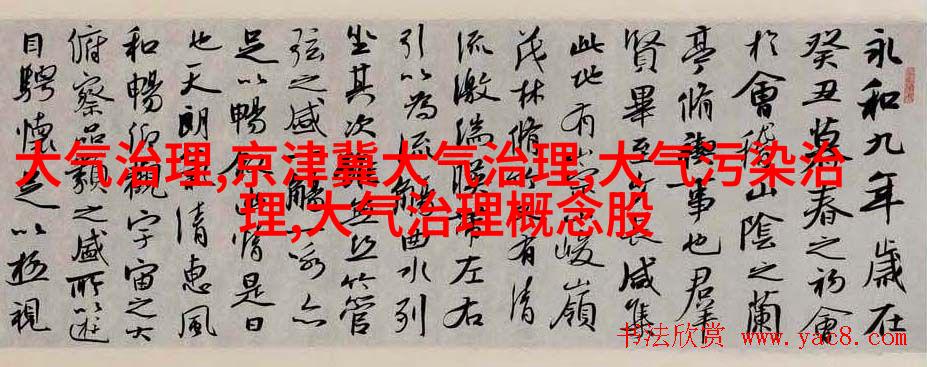 大气治理,京津冀大气治理,大气污染治
理,大气治理概念股
永和九年歲在
癸丑暮春之初會
於會稽山陰之蘭
亭脩禊事也群
賢畢至少長咸集
此地有崇山峻嶺
茂林脩竹又有清
流激湍映帶左右
引以為流觴曲水列
坐其次雖無絲竹管
弦之盛一觴一詠亦
足以暢敘幽情是日
也天朗氣清惠風
和暢仰觀宇宙之大
俯察品類之盛所以遊
目騁懷足以極視
书法欣赏 www.yac8.com